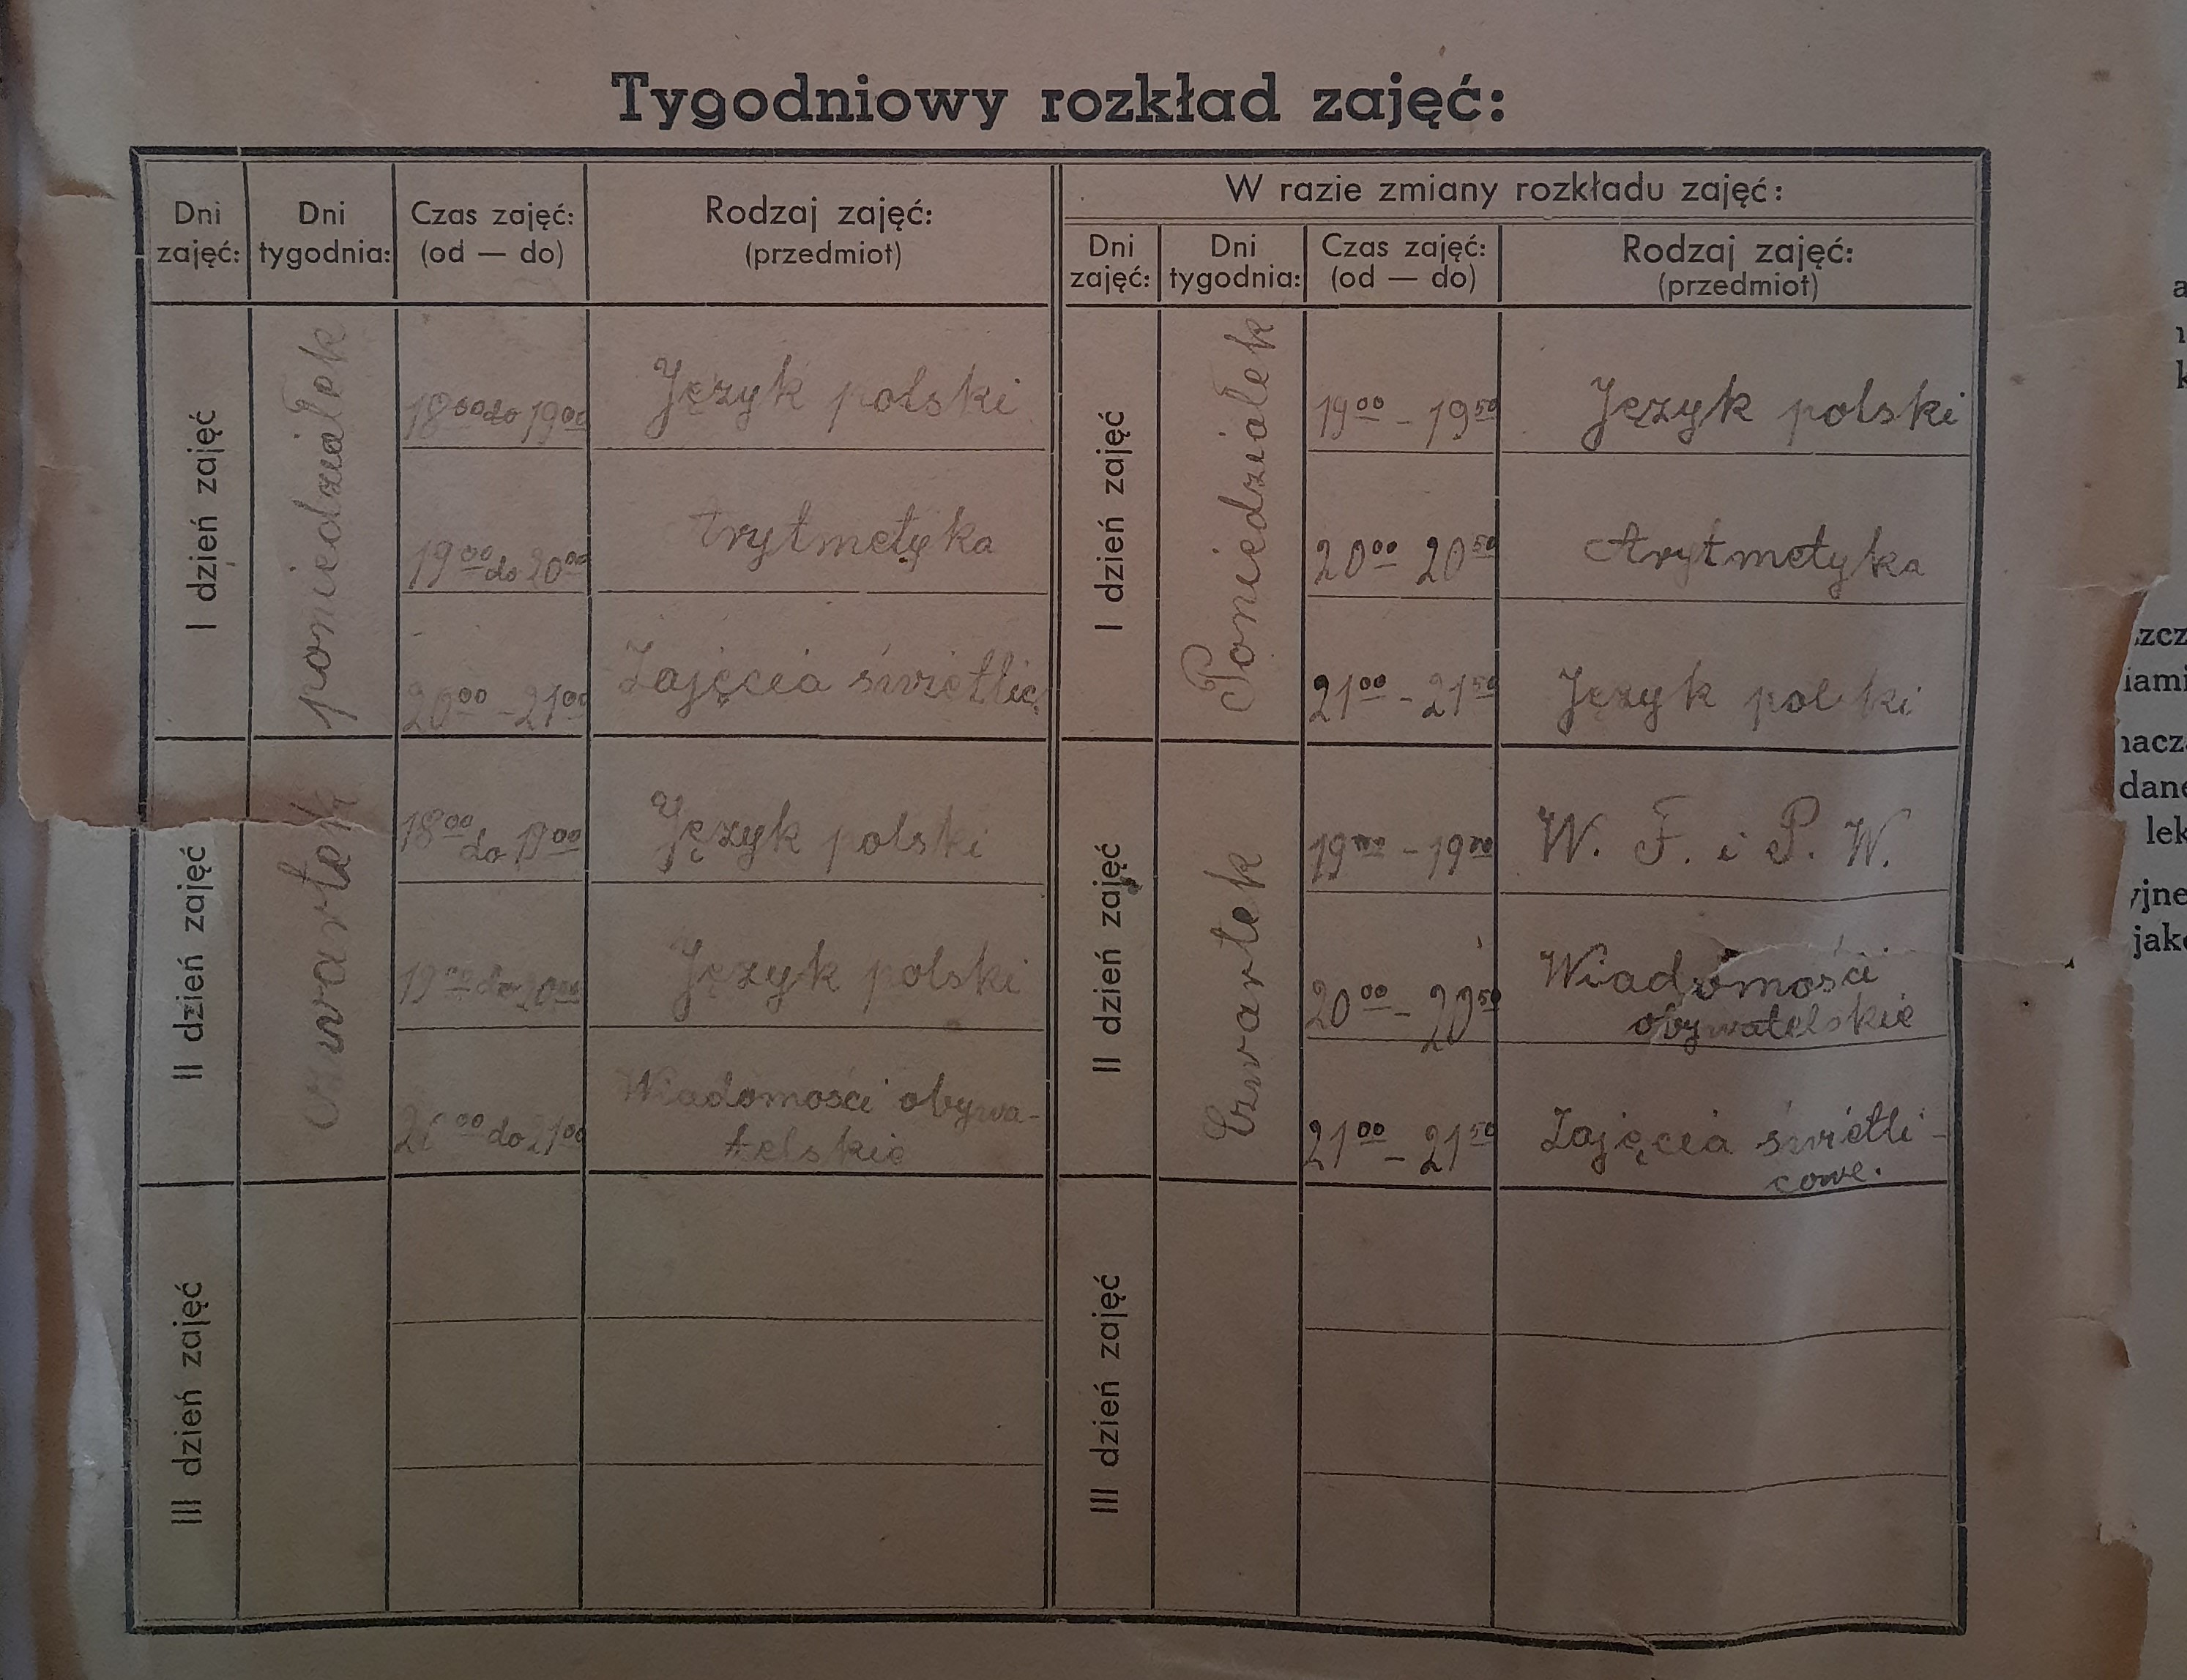 Tygodniowy rozkład zajęć:
Dni zajęć:
Dni tygodnia:
Czas zajęć:
(od — do)
Rodzaj zajęć:
(przedmiot)
I dzień zajęć
poniedziałek
18⁰⁰ do 19⁰⁰
Język polski
19⁰⁰ do 20⁰⁰
Arytmetyka
20⁰⁰ - 21⁰⁰
Zajęcia świetlic.
II dzień zajęć
czwartek
18⁰⁰ do 19⁰⁰
Język polski
19⁰⁰ do 20⁰⁰
Język polski
20⁰⁰ do 21⁰⁰
Wiadomości obywa-
telskie
III dzień zajęć
W razie zmiany rozkładu zajęć:
Dni zajęć:
Dni tygodnia:
Czas zajęć:
(od — do)
Rodzaj zajęć:
(przedmiot)
I dzień zajęć
Poniedziałek
19⁰⁰ - 19⁵⁰
Język polski
20⁰⁰ 20⁵⁰
Arytmetyka
21⁰⁰ - 21⁵⁰
Język polski
II dzień zajęć
Czwartek
W. F. i P. W.
20⁰⁰ - 20⁵⁰
Wiadomości
obywatelskie
21⁰⁰ - 21⁵⁰
Zajęcia świetli-
cowe.
III dzień zajęć